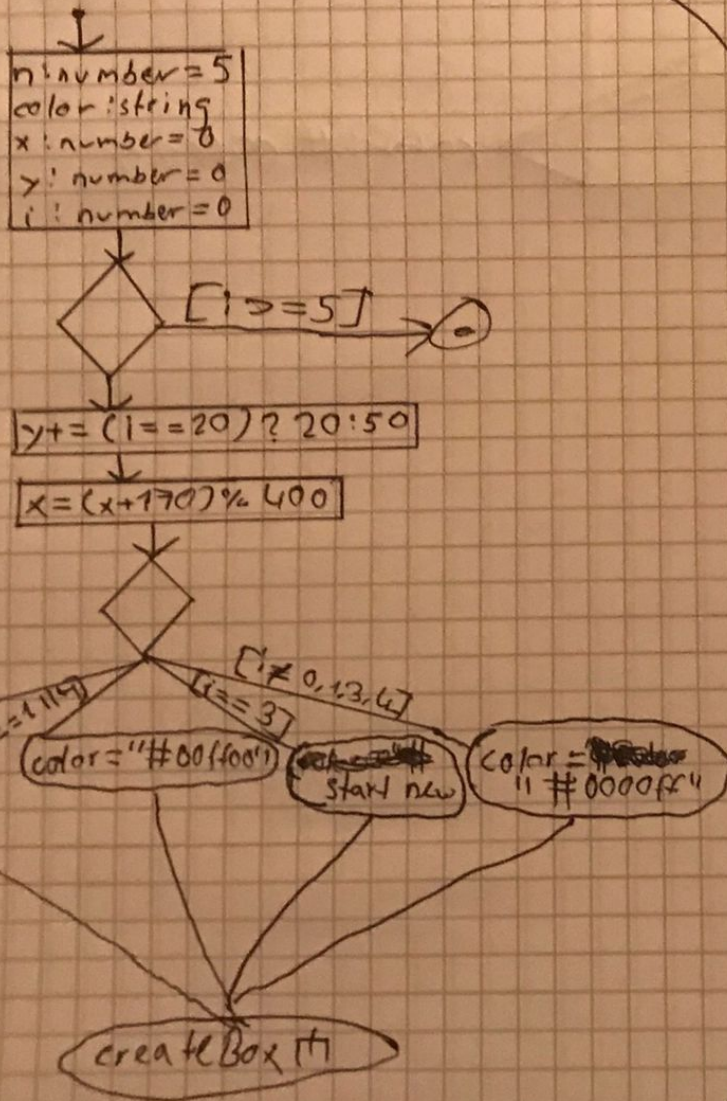 n:number=5
color:string
x:number=0
y: number=0
i: number=0
[i>=5]
y+=(i==20)?20:50
x=(x+170)%400
[i≠0,1,3,4]
[i==3]
color="#00ff00"
start new
color=
"#0000ff"
createBox